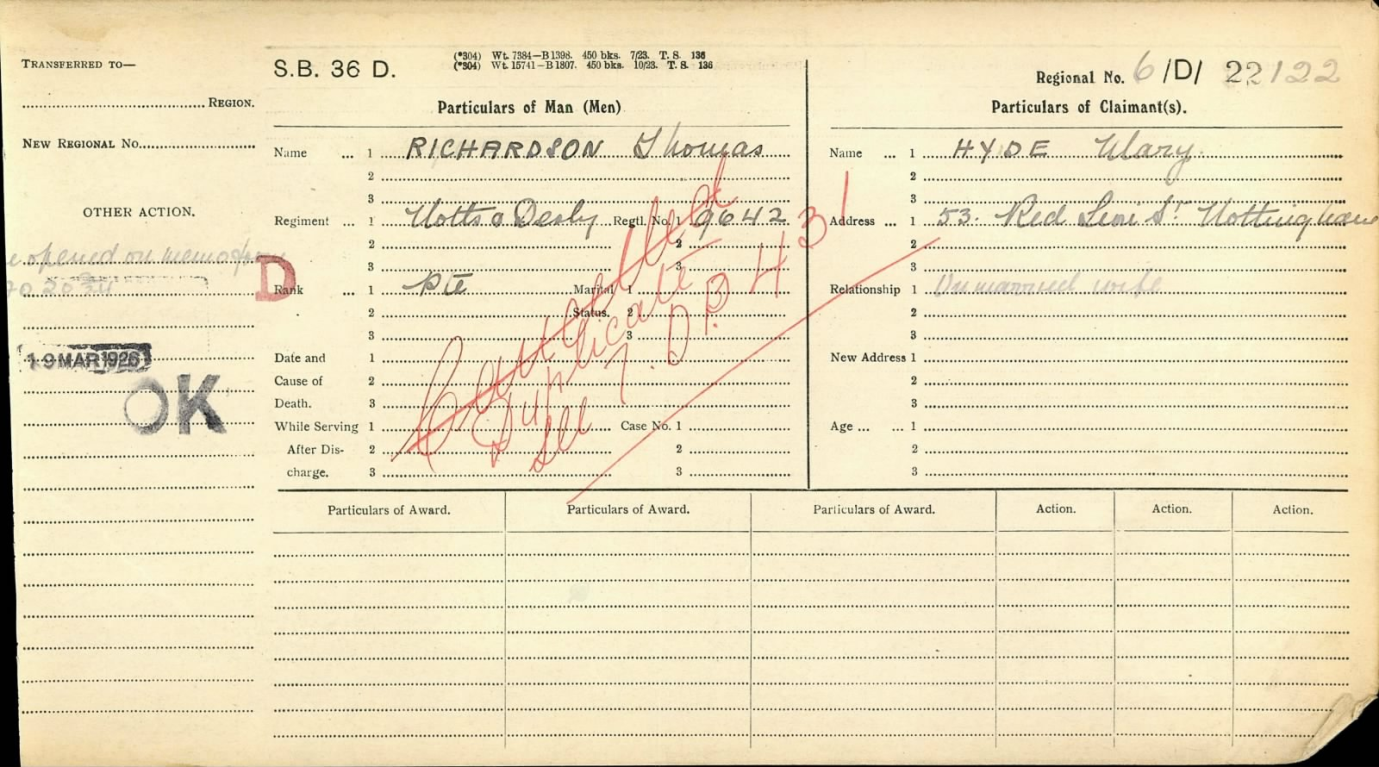 TRANSFERRED TO—
REGION.
NEW REGIONAL No.
OTHER ACTION.
opened on
19 MAR 1926
OK
D
S.B. 36 D.
(*304) Wt. 7384—B1398. 450 bks. 7/23. T. S. 136
(*304) Wt. 15741—B1807. 450 bks. 10/23. T. S. 136
Particulars of Man (Men)
Name ... 1 RICHARDSON Thomas
2
3
Regiment ... 1 Notts & Derby Regtl. No. 1 9642
2 2
3 3
Rank ... 1 Pte Marital 1
2 Status. 2
3 3
Date and 1
Cause of 2
Death. 3
While Serving 1 Case No. 1
After Dis- 2 2
charge. 3 3
Cancelled
Duplicate
See 7. DP 431
Regional No. 6/D/ 22122
Particulars of Claimant(s).
Name ... 1 HYDE Mary.
2
3
Address ... 1 53. Red Lion St Nottingham
2
3
Relationship 1 Unmarried wife
2
3
New Address 1
2
3
Age ... ... 1
2
3
Particulars of Award. Particulars of Award. Particulars of Award. Action. Action. Action.